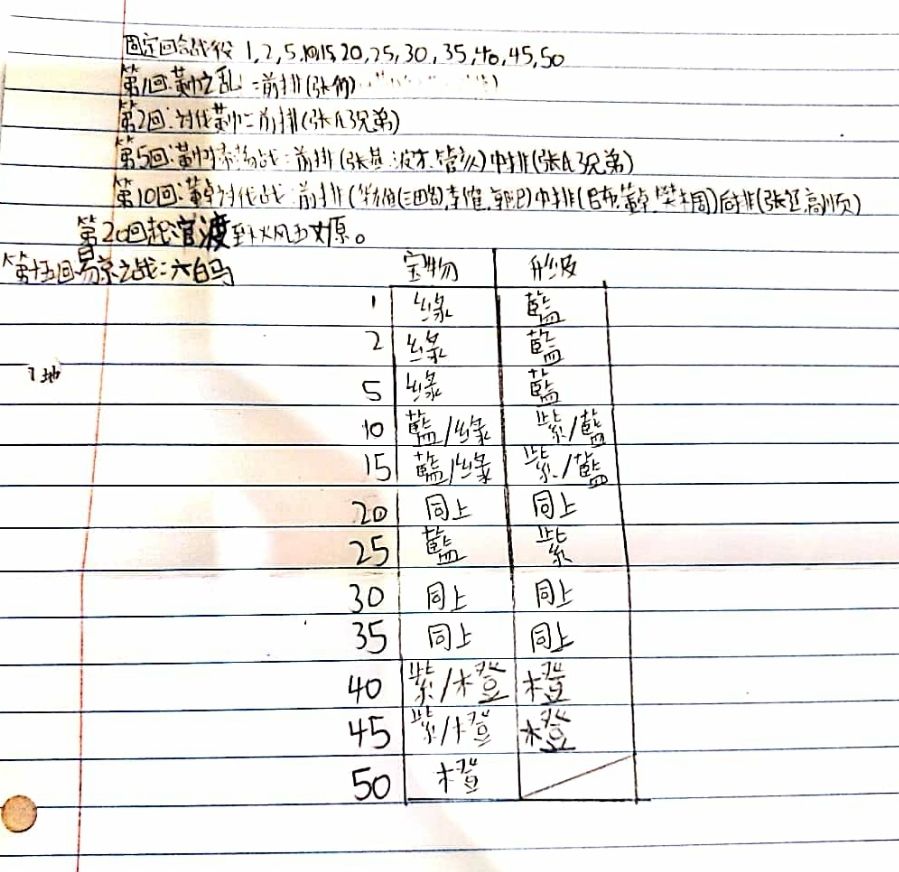 固定回合战役 1,2,5,10,15,20,25,30,35,40,45,50
第1回:黄巾之乱:前排(张角)
第2回:讨伐黄巾:前排(张氏3兄弟)
第5回:黄巾 战:前排(张 波才 管亥)中排(张氏3兄弟)
第10回:董卓讨伐战:前排(华雄 李傕, )中排(吕布,董卓,樊稠)后排(张辽,高顺)
第20回起官渡到秋风五丈原。
第十五回易京之战:六白马
宝物 形级
1 绿 藍
2 绿 藍
下地
5 绿 藍
10 藍/绿 紫/藍
15 藍/绿 紫/藍
20 同上 同上
25 藍 紫
30 同上 同上
35 同上 同上
40 紫/橙 橙
45 紫/橙 橙
50 橙